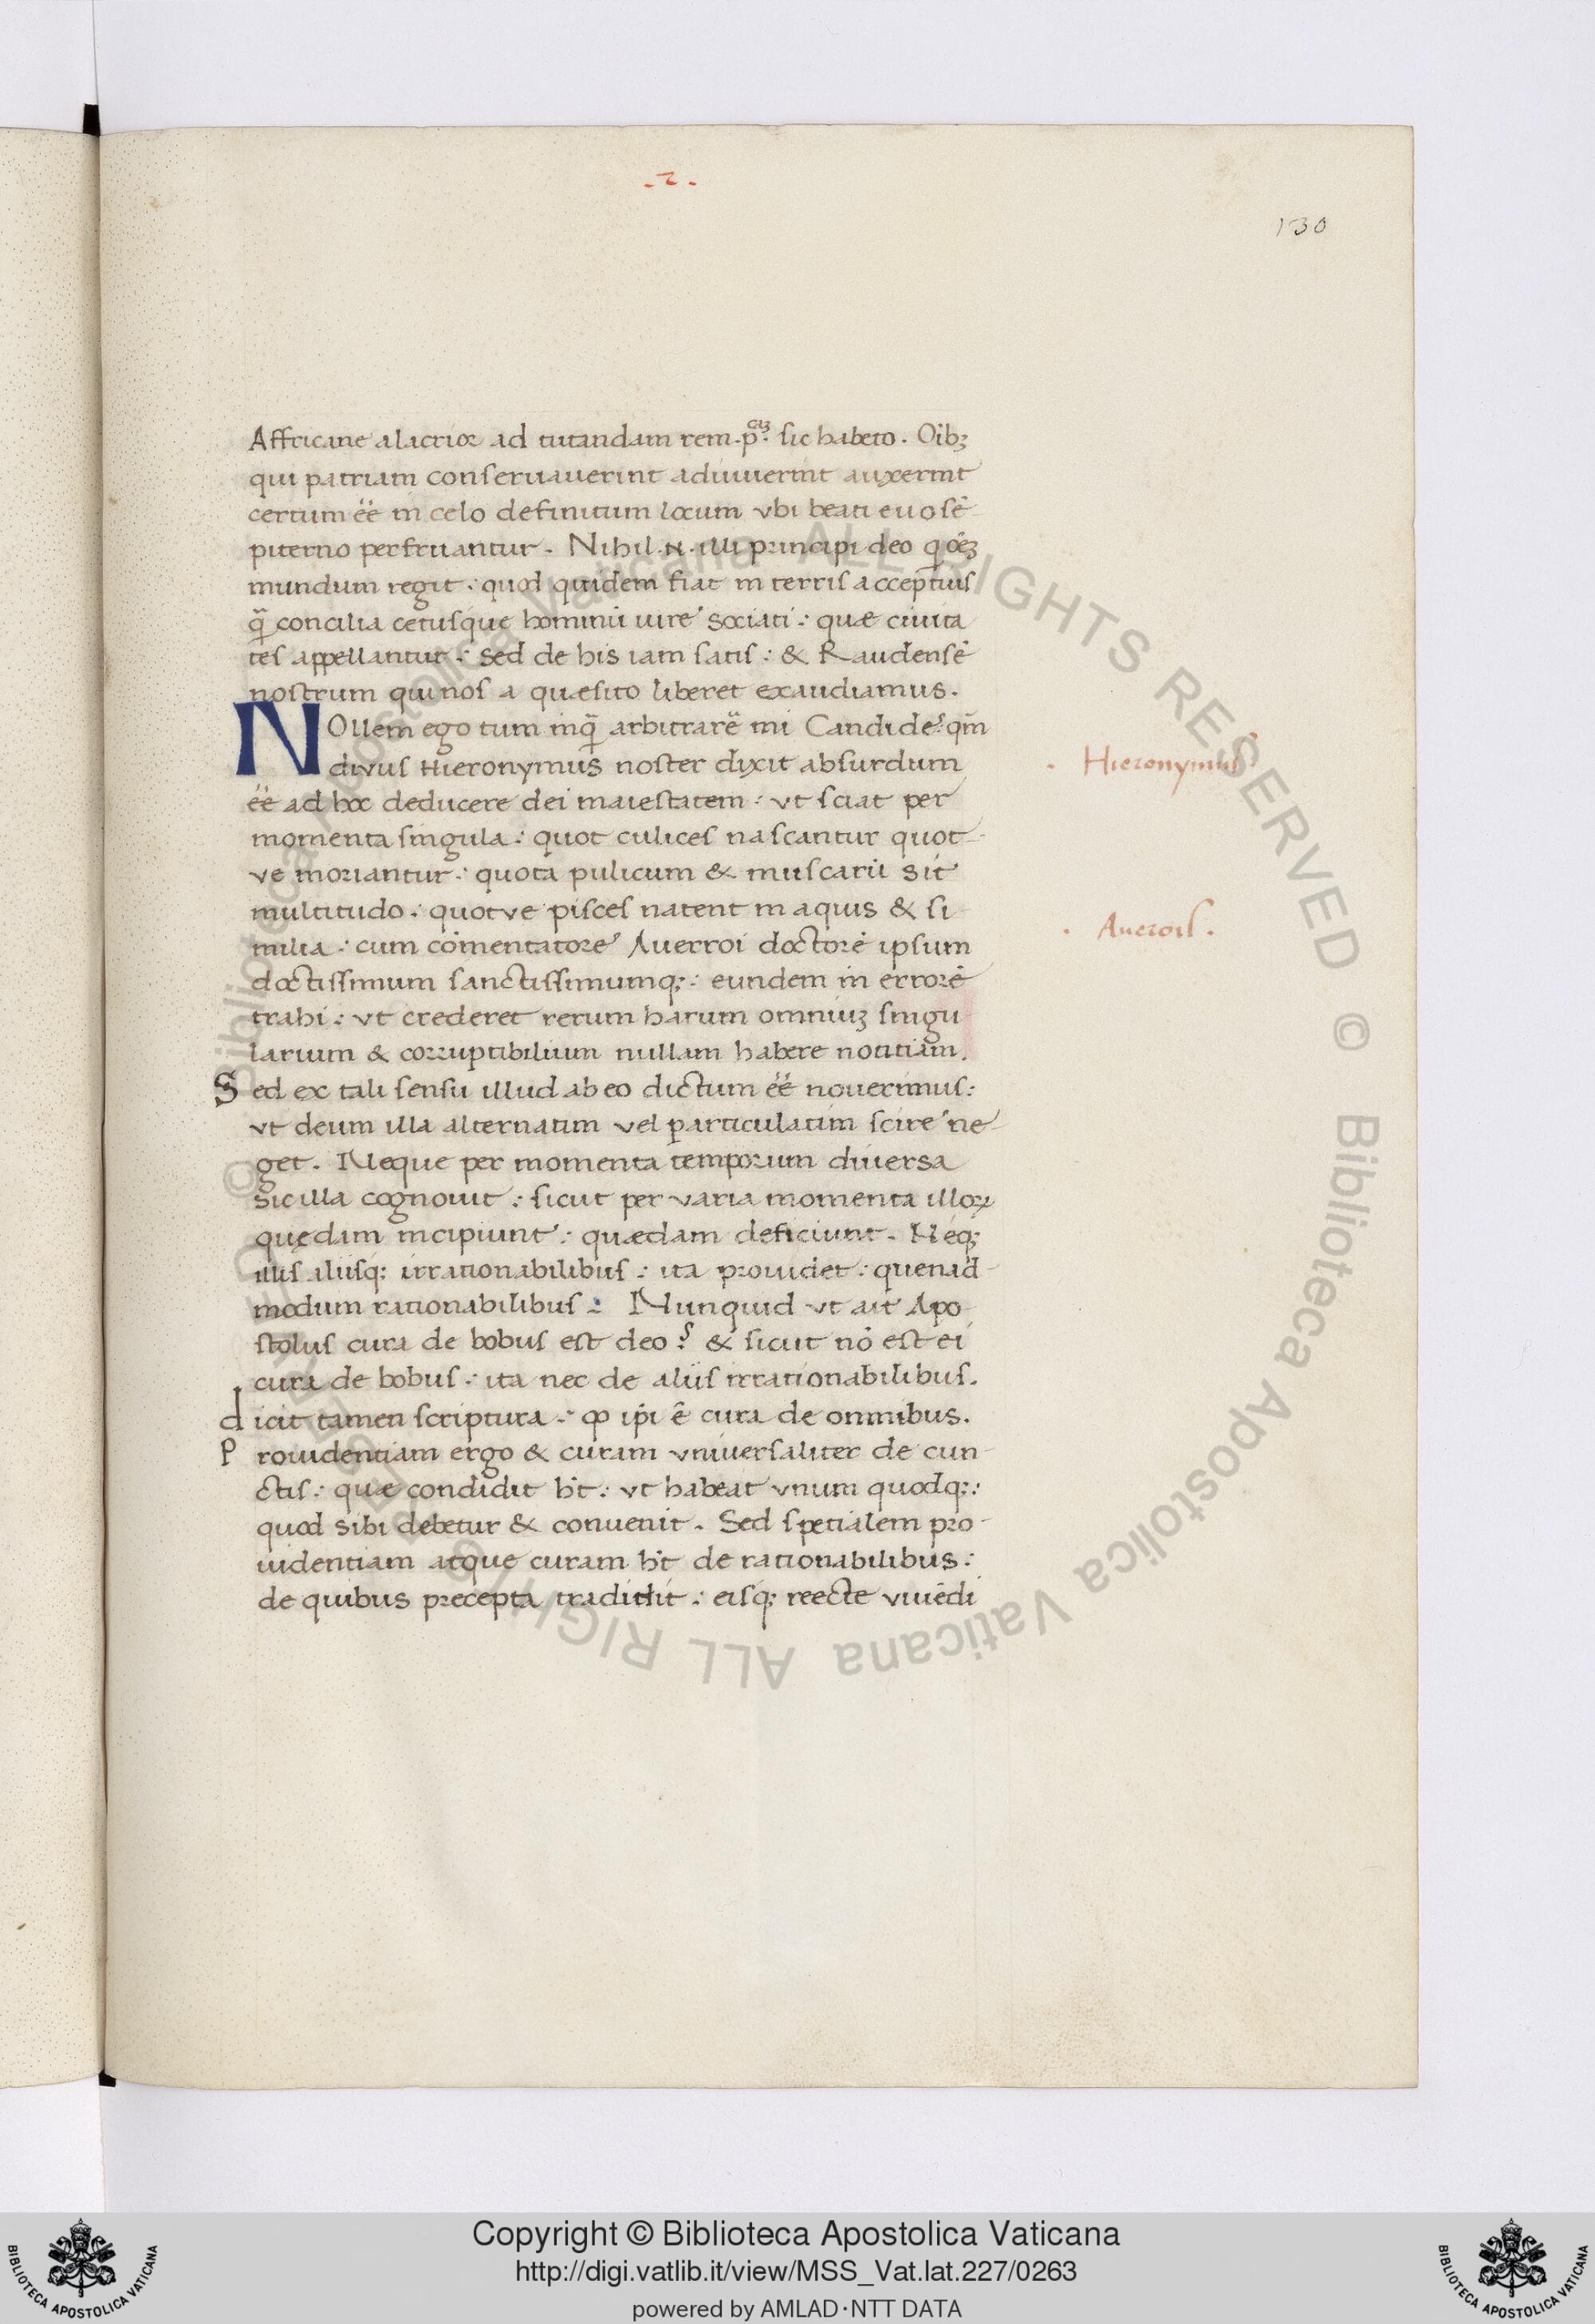 -2-
130
Affricane alacrior ad tutandam rem.p̄.cuȝ sic habeto. Oibȝ
qui patriam conseruauerint adiuuerint auxerint
certum ẽẽ in celo definitum locum vbi beati euo sē
piterno perfruantur. Nihil .n. illi principi deo q oēȝ
mundum regit: quod quidem fiat in terris acceptius
q̃ concilia cetusque hominū iure sociati: quæ ciuita
tes appellantur: Sed de his iam satis: & Raudensē
nostrum qui nos a quæsito liberet exaudiamus.
NOllem ego tum inq̃ arbitrarẽ mi Candide: qm̃
divus Hieronymus noster dixit absurdum
ẽẽ ad hoc deducere dei maiestatem: vt sciat per
momenta singula: quot culices nascantur quot
ve moriantur: quota pulicum & muscarū sit
multitudo: quotve pisces natent in aquis & si
milia: cum cōmentatore Averroi doctorē ipsum
doctissimum sanctissimumq;: eundem in errorē
trahi: vt crederet rerum harum omniuȝ singu
larium & corruptibilium nullam habere notitiam.
Sed ex tali sensu illud ab eo dictum ẽẽ nouerimus:
vt deum illa alternatim vel particulatim scire ne
get. Neque per momenta temporum diuersa
sic illa cognouit: sicut per varia momenta illoꝝ
quędam incipiunt: quædam deficiunt. Neq;
illis aliisq; irrationabilibus: ita prouidet: quenad
modum rationabilibus: Nunquid vt ait Apo
stolus cura de bobus est deo? & sicut nō est ei
cura de bobus: ita nec de aliis irrationabilibus.
dicit tamen scriptura: ꝙ ip̄i ē cura de omnibus.
Prouidentiam ergo & curam vniuersaliter de cun
ctis: quæ condidit h̄t: vt habeat vnum quodq;:
quod sibi debetur & conuenit. Sed spetialem pro
uidentiam atque curam h̄t de rationabilibus:
de quibus precepta tradidit: eisq; reecte viuēdi
. Hieronymus
. Averois .
© Biblioteca Apostolica Vaticana ALL RIGHTS RESERVED © Biblioteca Apostolica Vaticana ALL RIGHTS RESERVED
Copyright © Biblioteca Apostolica Vaticana
http://digi.vatlib.it/view/MSS_Vat.lat.227/0263
powered by AMLAD·NTT DATA
BIBLIOTECA APOSTOLICA VATICANA
BIBLIOTECA APOSTOLICA VATICANA